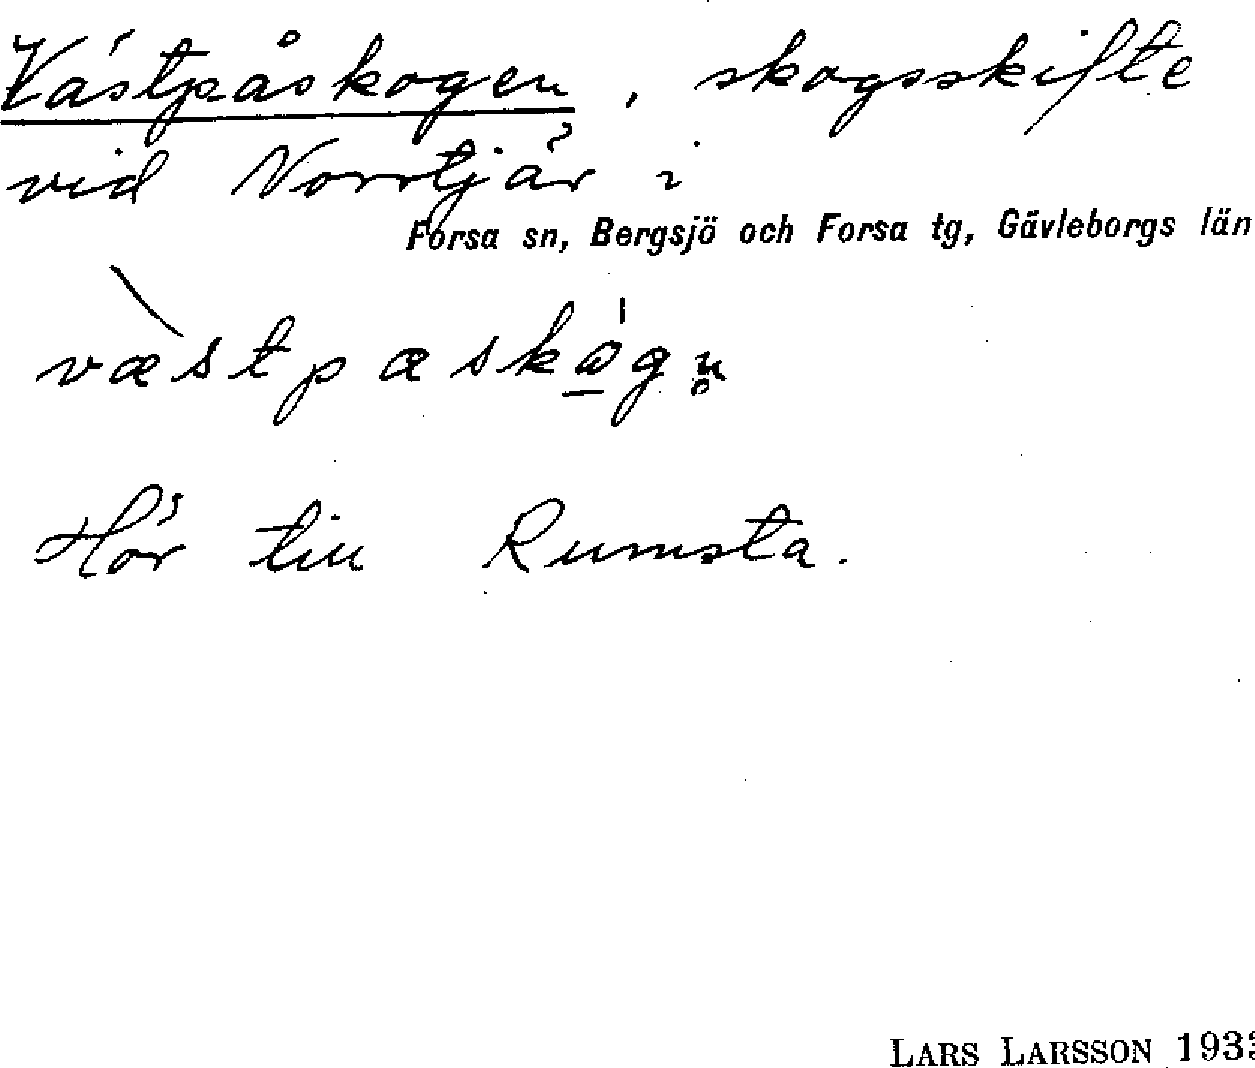 Västpåskogen, skogsskifte
vid Norrtjär i
Forsa sn, Bergsjö och Forsa tg, Gävleborgs län
Hör till Rumsta.
LARS LARSSON